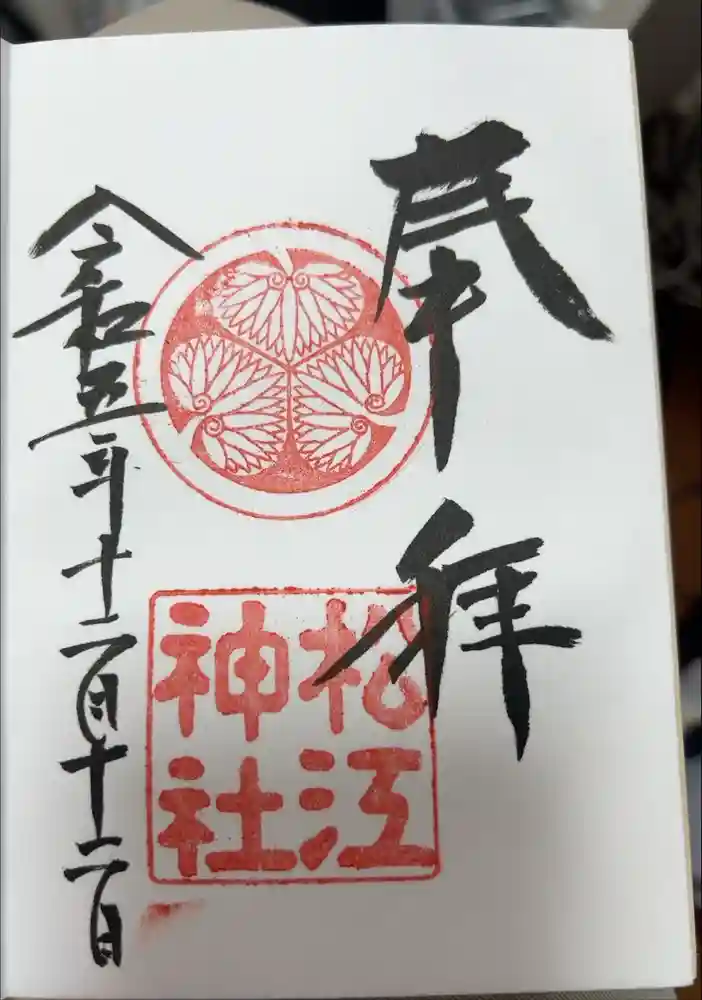 奉拝
松江
神社
令和五年十二月十二日